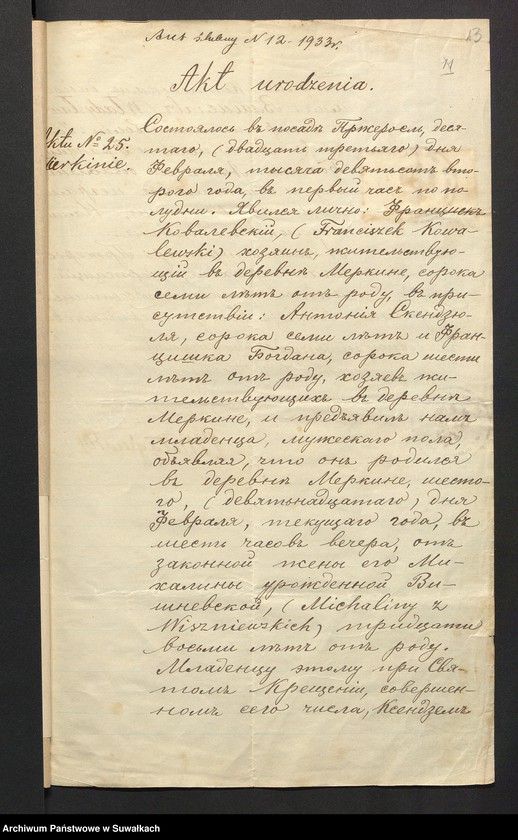 Akt ślubny N 12 - 1933r.
13
11
Akt urodzenia.
Aktu № 25.
Merkinie.
Состоялось въ посадѣ Пржеросль, деся-
таго, (двадцать третьяго) дня
Февраля, тысяча девятьсотъ вто-
рого года, въ первый часъ по по-
лудни. Явился лично: Францискъ
Ковалевскій, (Franciszek Kowa-
lewski) хозяинъ, жительствую-
щій въ деревнѣ Меркине, сорока
семи лѣтъ отъ роду, въ при-
сутствіи: Антонія Скендзю-
ля, сорока семи лѣтъ и Фран-
цишка Богдана, сорока шести
лѣтъ отъ роду, хозяевъ жи-
тельствующихъ въ деревнѣ
Меркине, и предъявилъ намъ
младенца, мужескаго пола,
объявляя, что онъ родился
въ деревнѣ Меркине, шесто-
го, (девятьнадцатаго) дня
Февраля, текущаго года, въ
шесть часовъ вечера, отъ
законной жены его Ми-
халины урожденной Ви-
шневской, (Michaliny z
Wiszniewskich) тридцати
восьми лѣтъ отъ роду.
Младенцу этому при Свя-
томъ Крещеніи, совершен-
номъ сего числа, Ксендземъ
Archiwum Państwowe w Suwałkach